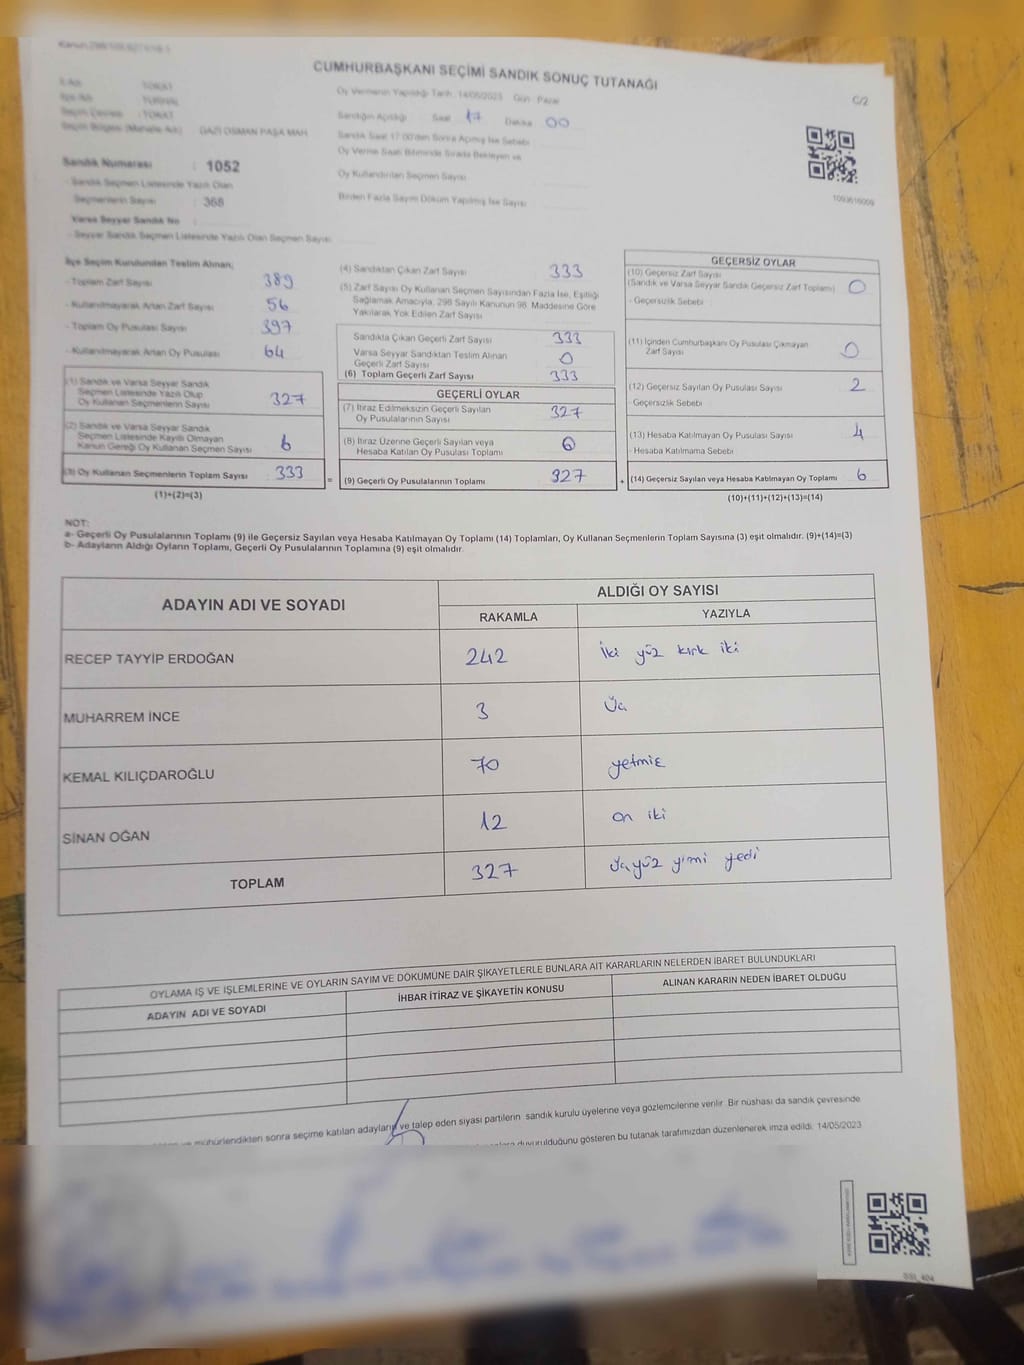 CUMHURBAŞKANI SEÇİMİ SANDIK SONUÇ TUTANAĞI
Oy Vermenin Yapıldığı Tarih : 14/05/2023 Gün : Pazar
C/2
İl Adı : TOKAT
İlçe Adı : TURHAL
Seçim Çevresi : TOKAT
Seçim Bölgesi (Mahalle Adı) : GAZİ OSMAN PAŞA MAH
Sandığın Açıldığı Saat 17 Dakika 00
Sandık Saat 17:00'den Sonra Açılmış İse Sebebi
Oy Verme Saati Bitiminde Sırada Bekleyen ve
Oy Kullandırılan Seçmen Sayısı
Birden Fazla Sayım Döküm Yapılmış İse Sayısı
Sandık Numarası : 1052
- Sandık Seçmen Listesinde Yazılı Olan
Seçmenlerin Sayısı : 368
Varsa Seyyar Sandık No
- Seyyar Sandık Seçmen Listesinde Yazılı Olan Seçmen Sayısı
İlçe Seçim Kurulundan Teslim Alınan;
- Toplam Zarf Sayısı 389
- Kullanılmayarak Artan Zarf Sayısı 56
- Toplam Oy Pusulası Sayısı 397
- Kullanılmayarak Artan Oy Pusulası 64
(1) Sandık ve Varsa Seyyar Sandık
Seçmen Listesinde Yazılı Olup
Oy Kullanan Seçmenlerin Sayısı 327
(2) Sandık ve Varsa Seyyar Sandık
Seçmen Listesinde Kayıtlı Olmayan
Kanun Gereği Oy Kullanan Seçmen Sayısı 6
(3) Oy Kullanan Seçmenlerin Toplam Sayısı 333
(1)+(2)=(3)
(4) Sandıktan Çıkan Zarf Sayısı 333
(5) Zarf Sayısı Oy Kullanan Seçmen Sayısından Fazla İse, Eşitliği
Sağlamak Amacıyla, 298 Sayılı Kanunun 98. Maddesine Göre
Yakılarak Yok Edilen Zarf Sayısı
Sandıkta Çıkan Geçerli Zarf Sayısı 333
Varsa Seyyar Sandıktan Teslim Alınan
Geçerli Zarf Sayısı 0
(6) Toplam Geçerli Zarf Sayısı 333
GEÇERLİ OYLAR
(7) İtiraz Edilmeksizin Geçerli Sayılan
Oy Pusulalarının Sayısı 327
(8) İtiraz Üzerine Geçerli Sayılan veya
Hesaba Katılan Oy Pusulası Toplamı 0
= (9) Geçerli Oy Pusulalarının Toplamı 327
GEÇERSİZ OYLAR
(10) Geçersiz Zarf Sayısı
(Sandık ve Varsa Seyyar Sandık Geçersiz Zarf Toplamı) 0
- Geçersizlik Sebebi
(11) İçinden Cumhurbaşkanı Oy Pusulası Çıkmayan
Zarf Sayısı 0
(12) Geçersiz Sayılan Oy Pusulası Sayısı 2
- Geçersizlik Sebebi
(13) Hesaba Katılmayan Oy Pusulası Sayısı 4
- Hesaba Katılmama Sebebi
+ (14) Geçersiz Sayılan veya Hesaba Katılmayan Oy Toplamı 6
(10)+(11)+(12)+(13)=(14)
NOT:
a- Geçerli Oy Pusulalarının Toplamı (9) ile Geçersiz Sayılan veya Hesaba Katılmayan Oy Toplamı (14) Toplamları, Oy Kullanan Seçmenlerin Toplam Sayısına (3) eşit olmalıdır. (9)+(14)=(3)
b- Adayların Aldığı Oyların Toplamı, Geçerli Oy Pusulalarının Toplamına (9) eşit olmalıdır.
ADAYIN ADI VE SOYADI ALDIĞI OY SAYISI
RAKAMLA YAZIYLA
RECEP TAYYİP ERDOĞAN 242 iki yüz kırk iki
MUHARREM İNCE 3 Üç
KEMAL KILIÇDAROĞLU 70 yetmiş
SİNAN OĞAN 12 on iki
TOPLAM 327 üçyüz yimi yedi
OYLAMA İŞ VE İŞLEMLERİNE VE OYLARIN SAYIM VE DÖKÜMÜNE DAİR ŞİKAYETLERLE BUNLARA AİT KARARLARIN NELERDEN İBARET BULUNDUKLARI
ADAYIN ADI VE SOYADI İHBAR İTİRAZ VE ŞİKAYETİN KONUSU ALINAN KARARIN NEDEN İBARET OLDUĞU
mühürlendikten sonra seçime katılan adayların ve talep eden siyasi partilerin sandık kurulu üyelerine veya gözlemcilerine verilir. Bir nüshası da sandık çevresinde
duyurulduğunu gösteren bu tutanak tarafımızdan düzenlenerek imza edildi. 14/05/2023